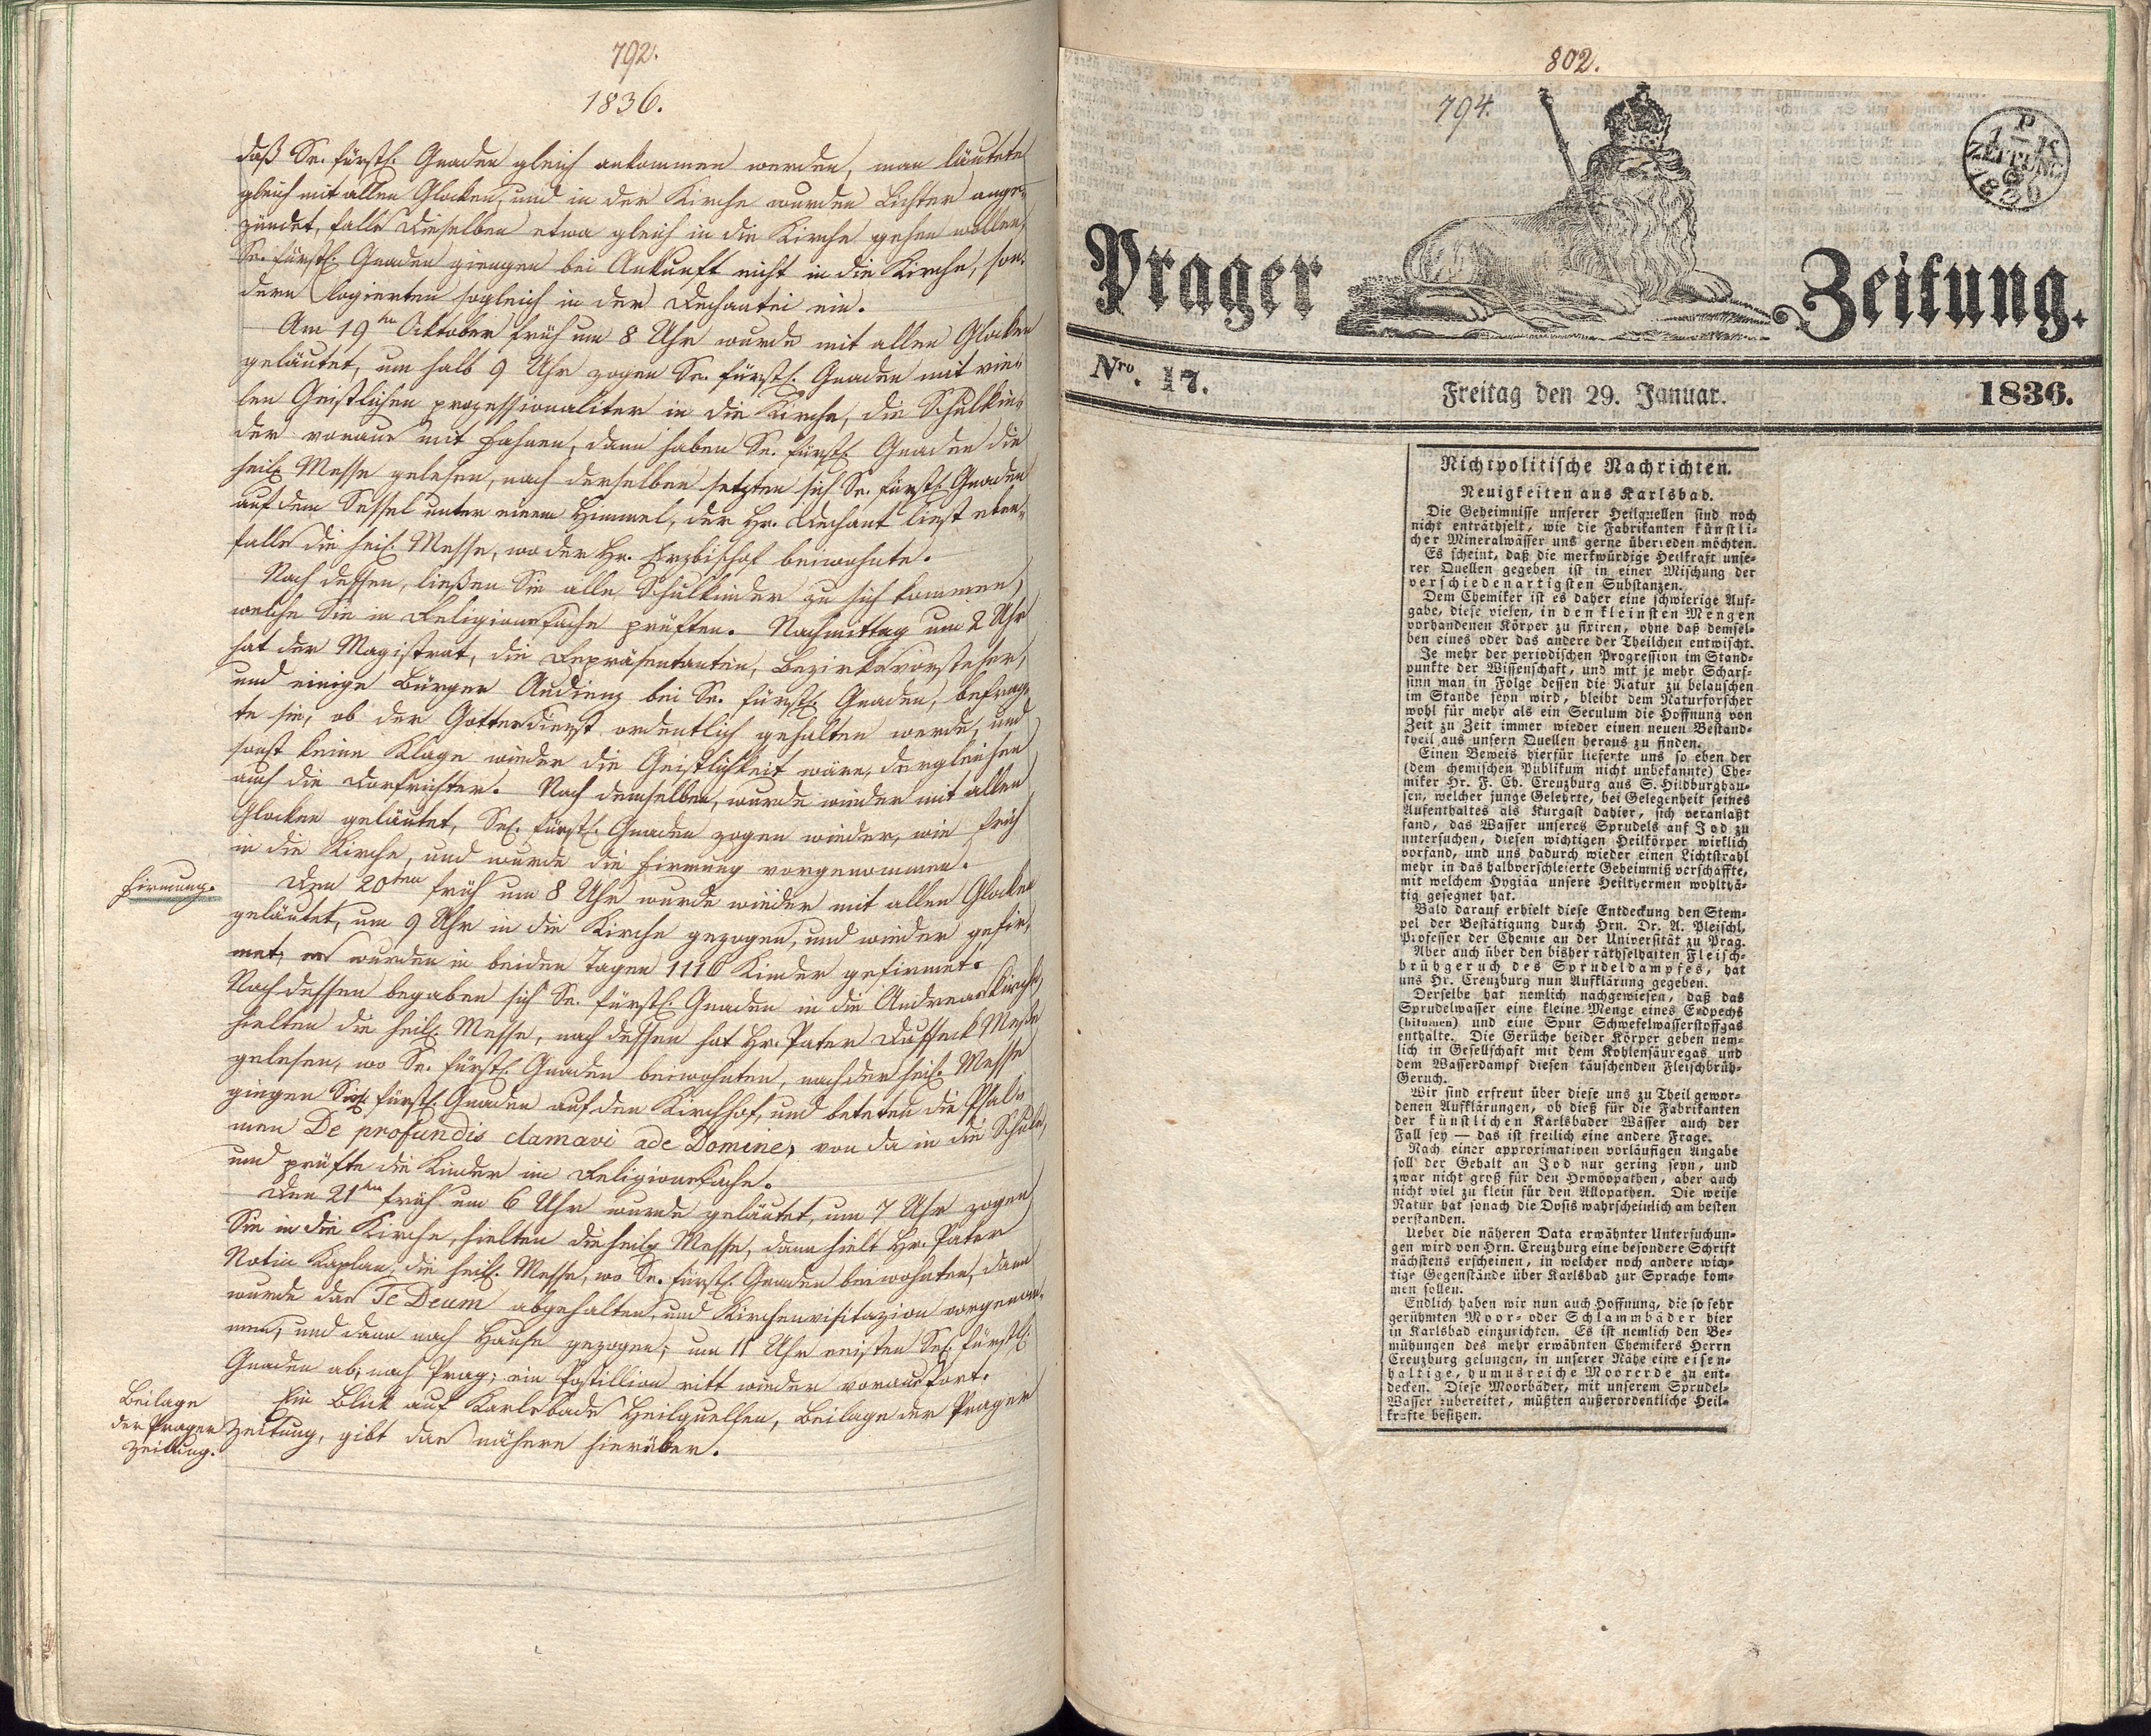 792.
1836.
daß Se. fürstl. Gnaden gleich ankommen werden, man läutete
gleich mit allen Glocken, und in der Kirche wurden Lichter ange-
zündet, falls dieselben etwa gleich in die Kirche gehen wollen,
Se. fürstl. Gnaden giengen bei Ankunft nicht in die Kirche, son-
dern logierten sogleich in der Dechantei ein.
Am 19ten Oktober früh um 8 Uhr wurde mit allen Glocken
geläutet, um halb 9 Uhr zogen Se. fürstl. Gnaden mit vie-
len Geistlichen prozessionaliter in die Kirche, die Schulkin-
der voraus mit Fahnen, dann haben Se. fürstl. Gnaden die
heil. Messe gelesen, nach derselben setzten sich Se. fürstl. Gnaden
auf dem Sessel unter einem Himmel, der Hr. Dechant liest eben-
falls die heil. Messe, wo der Hr. Erzbischof beiwohnte.
Nach dessen, ließen Sie alle Schulkinder zu sich kommen,
welche Sie in Religionsfache prüften. Nachmittag um 2 Uhr
hat der Magistrat, die Repräsentanten, Bezirksvorsteher,
und einige Bürger Audienz bei Se. fürstl. Gnaden, befrag-
te sie, ob der Gottesdienst ordentlich gehalten werde, und
sonst keine Klage wieder die Geistlichkeit wäre, dergleichen
auch die Dorfrichter. Nach demselben, wurde wieder mit allen
Glocken geläutet, Se. fürstl. Gnaden zogen wieder, wie früh
in die Kirche, und wurde die Firmung vorgenommen.
Firmung.
Den 20ten früh um 8 Uhr wurde wieder mit allen Glocken
geläutet, um 9 Uhr in die Kirche gezogen, und wieder gefir-
met, es wurden in beiden Tagen 1116 Kinder gefirmet.
Nach dessen begaben sich Se. fürstl. Gnaden in die Andreaskirche,
hielten die heil. Messe, nach dessen hat Hr. Pater Dusseck Messe
gelesen, wo Se. fürstl. Gnaden beiwohnten, nach der heil. Messe
gingen Se. fürstl. Gnaden auf den Kirchhof, und beteten die Psal-
men De profundis clamavi ade Domine, von da in die Schule,
und prüfte die Kinder im Religionsfache.
Den 21ten früh um 6 Uhr wurde geläutet, um 7 Uhr zogen
Sie in die Kirche, hielten die heilg Messe, dann hielt Hr. Pater
Kaplan, die heil. Messe, wo Se. fürstl. Gnaden beiwohnten, dann
wurde das Te Deum abgehalten, und Kirchenvisitazion vorgenom-
men, und dann nach Hause gezogen; um 11 Uhr reisten Se. fürstl.
Gnaden ab, nach Prag; ein Postillion ritt wieder voraus fort.
Beilage
der Prager
Zeitung.
Ein Blick auf Karlsbads Heilquellen, Beilage der Prager
Zeitung, gibt das nähere hierüber.
802.
794.
P
1 K
ZEITUNG
Prager Zeitung.
Nro. 17.
Freitag den 29. Januar.
1836.
Nichtpolitische Nachrichten.
Neuigkeiten aus Karlsbad.
Die Geheimnisse unserer Heilquellen sind noch
nicht enträthselt, wie die Fabrikanten künstli-
cher Mineralwässer uns gerne überreden möchten.
Es scheint, daß die merkwürdige Heilkraft unse-
rer Quellen gegeben ist in einer Mischung der
verschiedenartigsten Substanzen.
Dem Chemiker ist es daher eine schwierige Auf-
gabe, diese vielen, in den kleinsten Mengen
vorhandenen Körper zu fixiren, ohne daß demsel-
ben eines oder das andere der Theilchen entwischt.
Je mehr der periodischen Progression im Stand-
punkte der Wissenschaft, und mit je mehr Scharf-
sinn man in Folge dessen die Natur zu belauschen
im Stande seyn wird, bleibt dem Naturforscher
wohl für mehr als ein Seculum die Hoffnung von
Zeit zu Zeit immer wieder einen neuen Bestand-
theil aus unsern Quellen heraus zu finden.
Einen Beweis hierfür lieferte uns so eben der
(dem chemischen Publikum nicht unbekannte) Che-
miker Hr. F. Ch. Creuzburg aus S. Hildburghau-
sen, welcher junge Gelehrte, bei Gelegenheit seines
Aufenthaltes als Kurgast dahier, sich veranlaßt
fand, das Wasser unseres Sprudels auf Jod zu
untersuchen, diesen wichtigen Heilkörper wirklich
vorfand, und uns dadurch wieder einen Lichtstrahl
mehr in das halbverschleierte Geheimniß verschaffte,
mit welchem Hygiäa unsere Heilthermen wohlthä-
tig gesegnet hat.
Bald darauf erhielt diese Entdeckung den Stem-
pel der Bestätigung durch Hrn. Dr. A. Pleischl,
Professor der Chemie an der Universität zu Prag.
Aber auch über den bisher räthselhaften Fleisch-
brühgeruch des Sprudeldampfes, hat
uns Hr. Creuzburg nun Aufklärung gegeben.
Derselbe hat nemlich nachgewiesen, daß das
Sprudelwasser eine kleine Menge eines Erdpechs
(bitumen) und eine Spur Schwefelwasserstoffgas
enthalte. Die Gerüche beider Körper geben nem-
lich in Gesellschaft mit dem Kohlensäuregas und
dem Wasserdampf diesen täuschenden Fleischbrüh-
Geruch.
Wir sind erfreut über diese uns zu Theil gewor-
denen Aufklärungen, ob dieß für die Fabrikanten
der künstlichen Karlsbader Wässer auch der
Fall sey — das ist freilich eine andere Frage.
Nach einer approximativen vorläufigen Angabe
soll der Gehalt an Jod nur gering seyn, und
zwar nicht groß für den Homöopathen, aber auch
nicht viel zu klein für den Allopathen. Die weise
Natur hat sonach die Dosis wahrscheinlich am besten
verstanden.
Ueber die näheren Data erwähnter Untersuchun-
gen wird von Hrn. Creuzburg eine besondere Schrift
nächstens erscheinen, in welcher noch andere wich-
tige Gegenstände über Karlsbad zur Sprache kom-
men sollen.
Endlich haben wir nun auch Hoffnung, die so sehr
gerühmten Moor- oder Schlammbäder hier
in Karlsbad einzurichten. Es ist nemlich den Be-
mühungen des mehr erwähnten Chemikers Herrn
Creuzburg gelungen, in unserer Nähe eine eisen-
haltige, humusreiche Moorerde zu ent-
decken. Diese Moorbäder, mit unserem Sprudel-
Wasser zubereitet, müßten außerordentliche Heil-
kräfte besitzen.